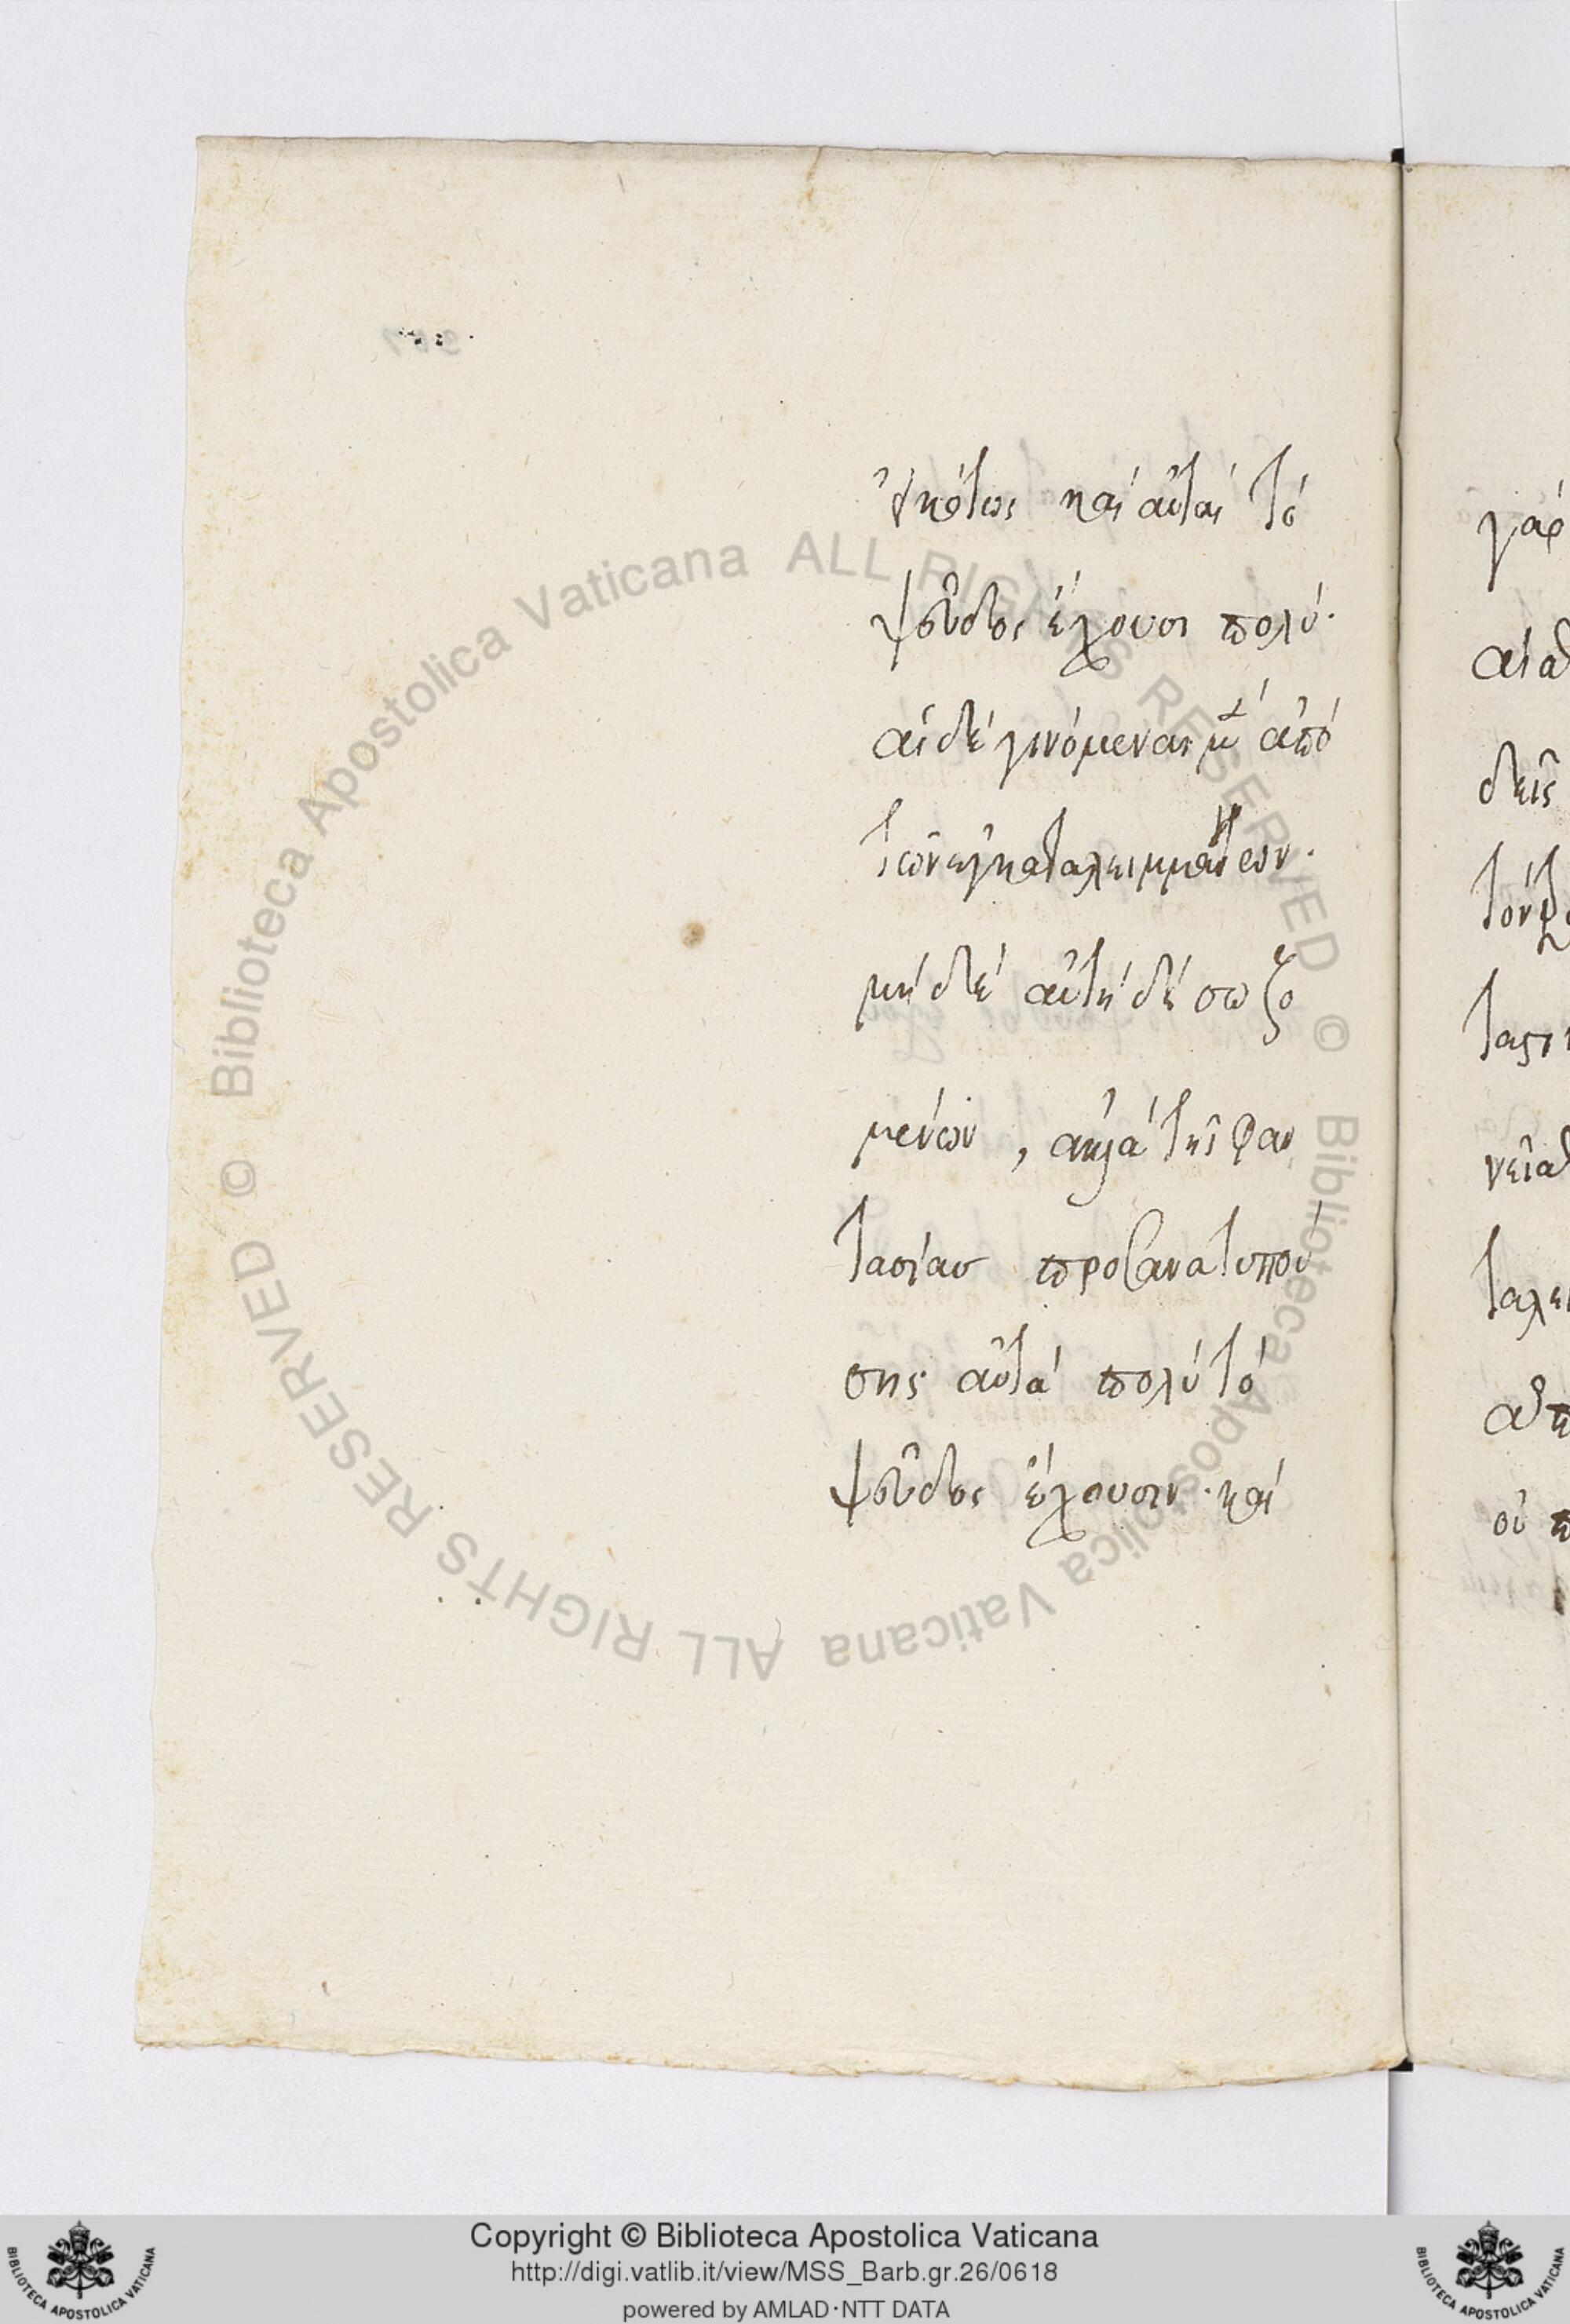 εἰκότως καὶ αὗται τὸ
ψεῦδος ἔχουσι πολύ·
αἱ δὲ γινόμεναι μὲν ἀπὸ
τῶν ἐγκαταλειμμάτων·
μὴ δὲ αὐτὴ δὲ σωζο
μένων, ἀλλὰ τῆς φαν
τασίας προσανατυπού
σης αὐτὰ πολὺ τὸ
ψεῦδος ἔχουσιν· καὶ
γὰρ
δεις
© Biblioteca Apostolica Vaticana ALL RIGHTS RESERVED
© Biblioteca Apostolica Vaticana ALL RIGHTS RESERVED
Copyright © Biblioteca Apostolica Vaticana
http://digi.vatlib.it/view/MSS_Barb.gr.26/0618
powered by AMLAD·NTT DATA
BIBLIOTECA APOSTOLICA VATICANA
BIBLIOTECA APOSTOLICA VATICANA